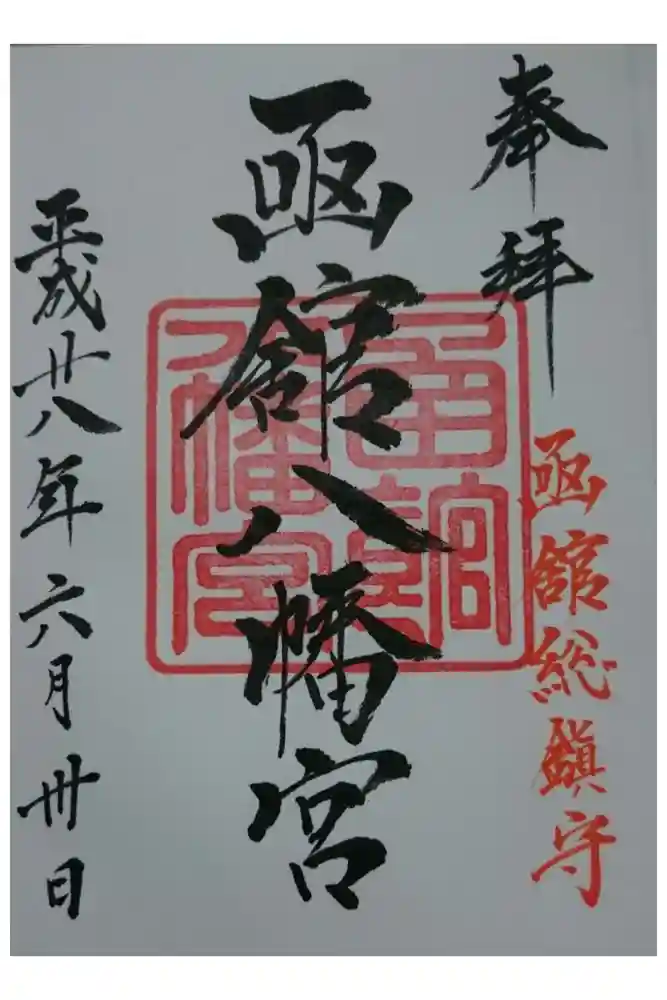 奉拝
函館総鎮守
函館八幡宮
函館八幡宮
平成廿八年六月卅日